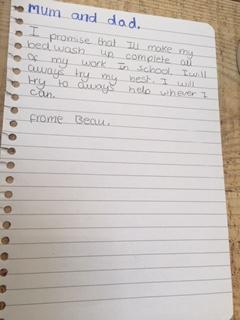 Mum and dad.
I promise that Ill make my
bed wash up complete all
of my work In school. I will
always try my best. I will
try to always help whever I
can.
frome Beau.